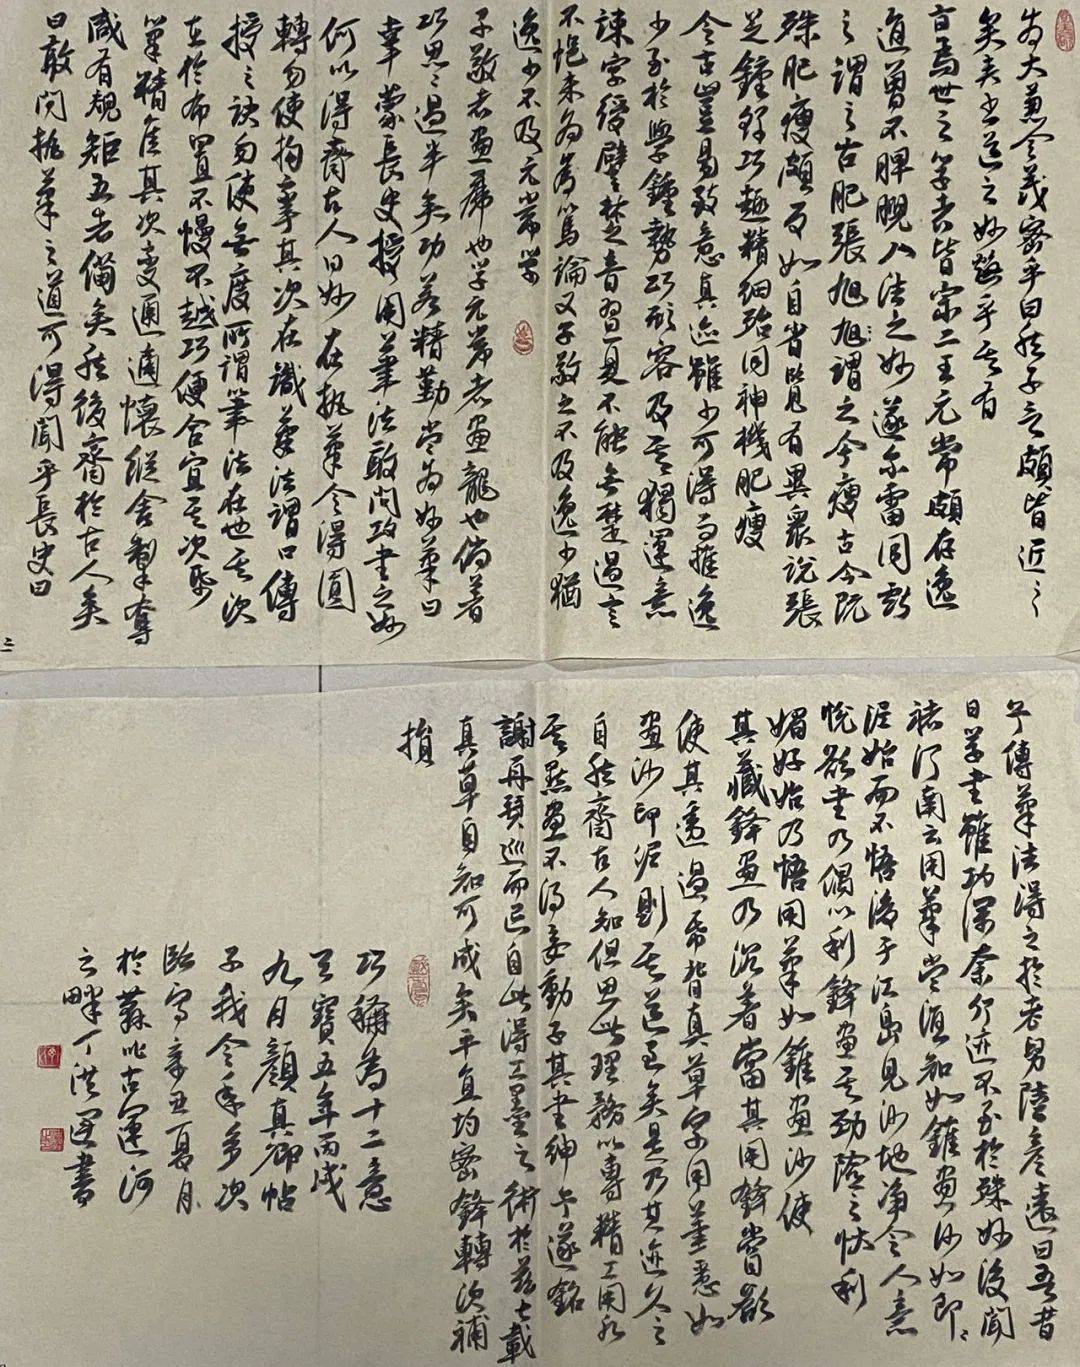 为大兼令茂密乎曰然子言頗皆近之
矣夫书道之妙焕乎其有
旨焉世之学者皆宗二王元常頗存逸
迹曾不睥睨八法之妙遂尔雷同献
之谓之古肥張旭旭謂之今瘦古今既
殊肥瘦頗反如自省覽有異眾說張
芝鍾繇巧趣精细殆同神機肥瘦
今古豈易致意真迹雖少可得而推逸
少至於學鍾勢巧形容及其獨運意
疎字緩譬楚音習夏不能無楚過言
不悒未为篤論又子敬之不及逸少猶
逸少不及元常学
子敬者畫虎也学元常者畫龍也倘著
巧思思過半矣功若精勤當为妙筆曰
幸蒙長史授用筆法敢问攻書之妙
何以得齊古人曰妙在執筆令得圓
轉勿使拘挛其次在識筆法謂口傳
授之訣勿使無度所謂筆法在也其次
在於布置不慢不越巧便合宜其次紙
筆精佳其次变通適懷縱舍掣奪
咸有規矩五者備矣然後齊於古人矣
曰敢问執筆之道可得聞乎長史曰
予傳筆法得之於老舅陸彦遠曰吾昔
日学書雖功深奈何迹不至於殊妙後聞
褚河南云用筆當須知如錐畫沙如印印
泥始而不悟後于江島見沙地净令人意
悅欲书乃偶以利鋒畫其劲險之狀利
媚好始乃悟用筆如錐畫沙使
其藏鋒畫乃沉著當其用鋒嘗欲
使其透過帋背真草字用筆悉如
畫沙印泥則其道至矣是乃其迹久之
自然齊古人知但思此理務以專精工用永
其點畫不得妄動子其書紳予遂銘
謝再拜逡巡而已自此得工墨之術於兹七載
真草自知可成矣平直均密鋒轉決補
損
巧稱為十二意
天寶五年丙戌
九月顏真卿帖
子我今年多次
臨寫辛丑夏月
於蘇北古運河
之畔丁洪運書